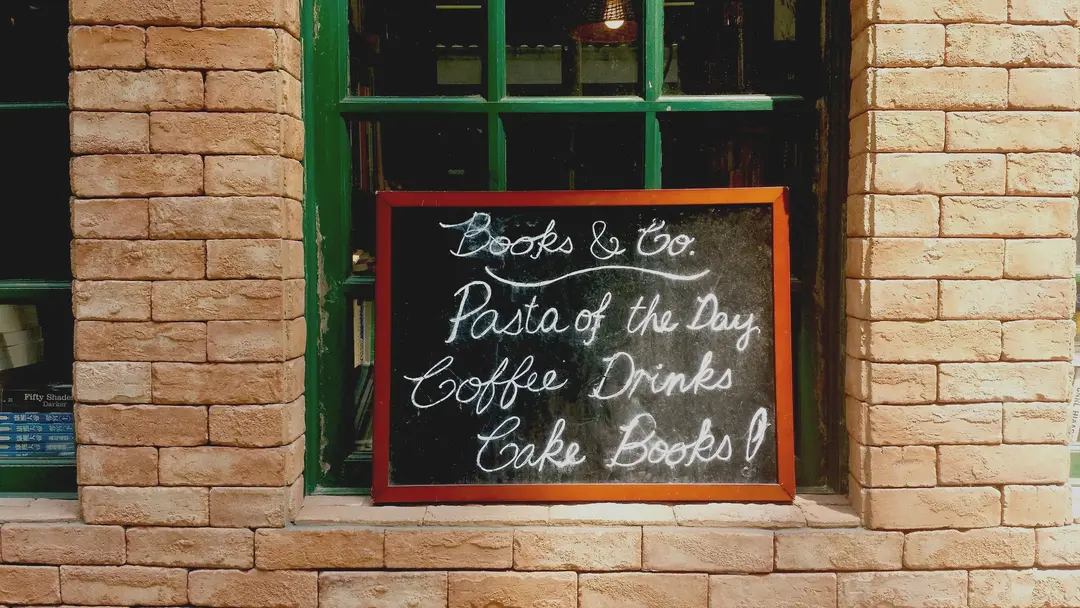 Books & Co.
Pasta of the Day
Coffee Drinks
Cake Books!
Fifty Shades
Darker